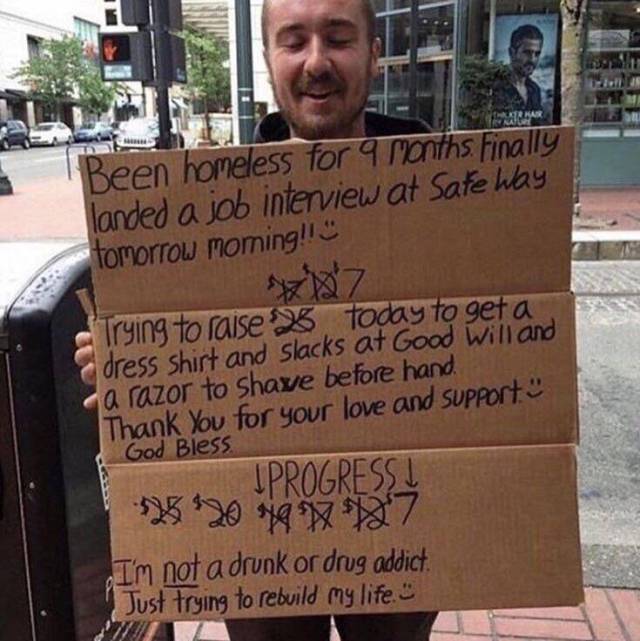 THICKER HAIR
BY NATURE
Been homeless for 9 months. Finally
landed a job interview at Safe Way
tomorrow morning!! :)
$17 $12 7
Trying to raise $25 today to get a
dress shirt and slacks at Good Will and
a razor to shave before hand.
Thank You for your love and support. :)
God Bless
↓PROGRESS↓
$25 $20 $19 $17 $12 7
I'm not a drunk or drug addict.
Just trying to rebuild my life. :)